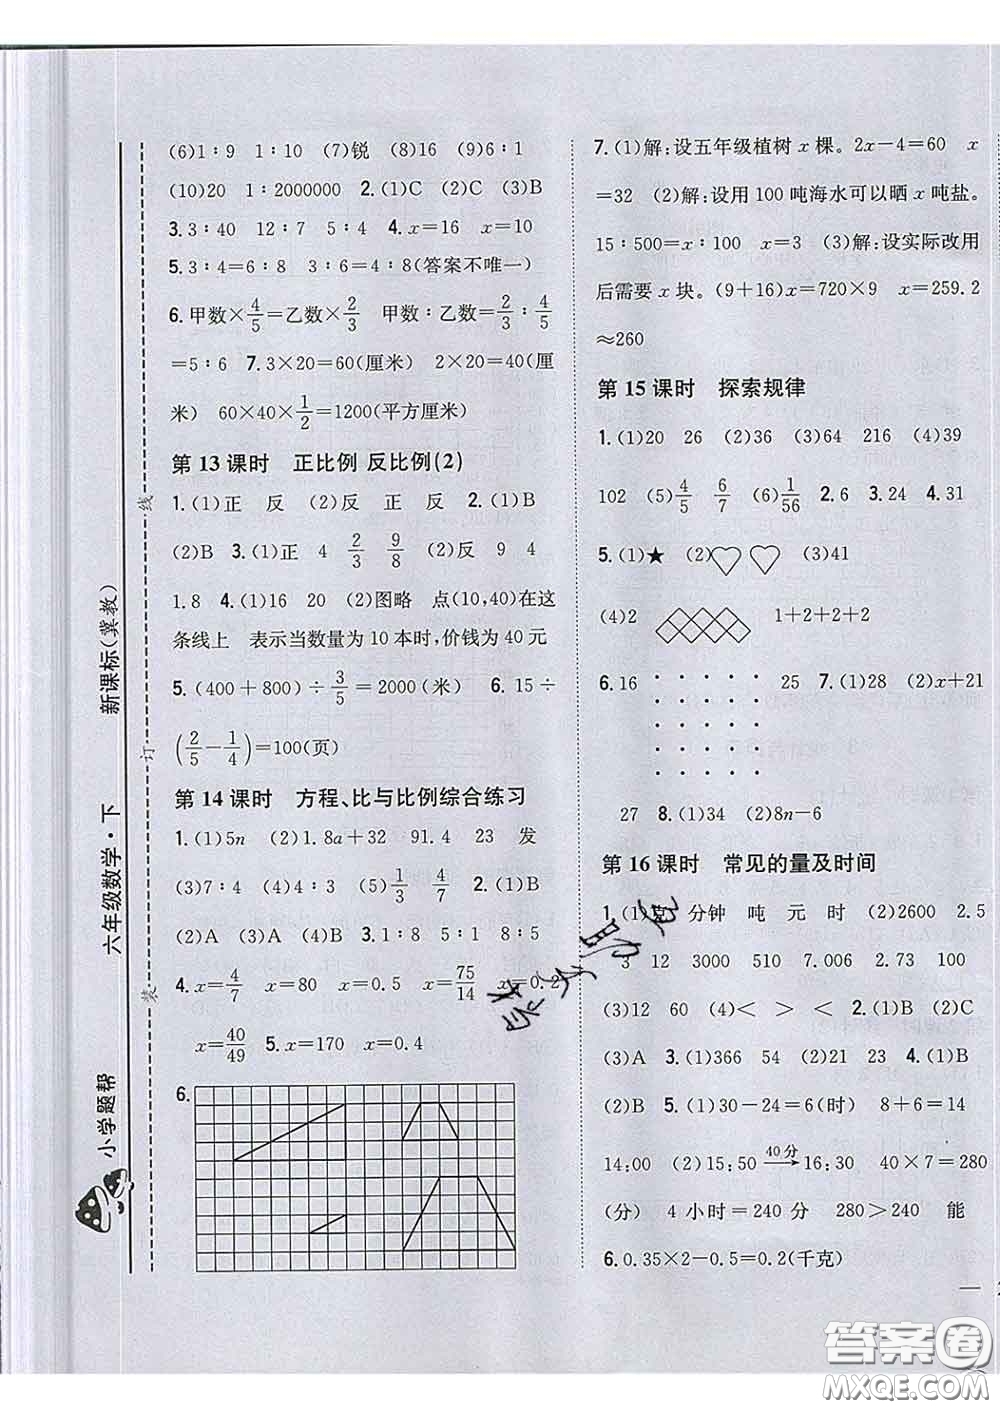 (6)1∶9 1∶10 (7)锐 (8)16 (9)6∶1
(10)20 1∶2000000 2.(1)C (2)C (3)B
3.3∶40 12∶7 5∶4 4.x=16 x=10
5.3∶4=6∶8 3∶6=4∶8(答案不唯一)
6.甲数×4/5=乙数×2/3 甲数∶乙数=2/3∶4/5
=5∶6 7.3×20=60(厘米) 2×20=40(厘
米) 60×40×1/2=1200(平方厘米)
第13课时 正比例 反比例(2)
1.(1)正 反 (2)反 正 反 2.(1)B
(2)B 3.(1)正 4 2/3 9/8 (2)反 9 4
1.8 4.(1)16 20 (2)图略 点(10,40)在这
条线上 表示当数量为10本时,价钱为40元
5.(400+800)÷3/5=2000(米) 6.15÷
(2/5-1/4)=100(页)
第14课时 方程、比与比例综合练习
1.(1)5n (2)1.8a+32 91.4 23 发
(3)7∶4 (4)4∶3 (5)1/3 4/7 2.(1)B
(2)A (3)A (4)B 3.1∶8 5∶1 8∶5
4.x=4/7 x=80 x=0.5 x=75/14 x=0.2
x=40/49 5.x=170 x=0.4
6.
7.(1)解:设五年级植树x棵。2x-4=60 x
=32 (2)解:设用100吨海水可以晒x吨盐。
15∶500=x∶100 x=3 (3)解:设实际改用
后需要x块。(9+16)x=720×9 x=259.2
≈260
第15课时 探索规律
1.(1)20 26 (2)36 (3)64 216 (4)39
102 (5)4/5 6/7 (6)1/56 2.6 3.24 4.31
5.(1)★ (2)♡♡ (3)41
(4)2 1+2+2+2
6.16 25 7.(1)28 (2)x+21
27 8.(1)34 (2)8n-6
第16课时 常见的量及时间
1.(1)克 分钟 吨 元 时 (2)2600 2.5
3 12 3000 510 7.006 2.73 100
(3)12 60 (4)< > < 2.(1)B (2)C
(3)A 3.(1)366 54 (2)21 23 4.(1)B
(2)B 5.(1)30-24=6(时) 8+6=14
14:00 (2)15:50 40分→16:30 40×7=280
(分) 4小时=240分 280>240 能
6.0.35×2-0.5=0.2(千克)
小学题帮
六年级数学·下
新课标(冀教)
装 订 线
答案圈
MXQE.COM